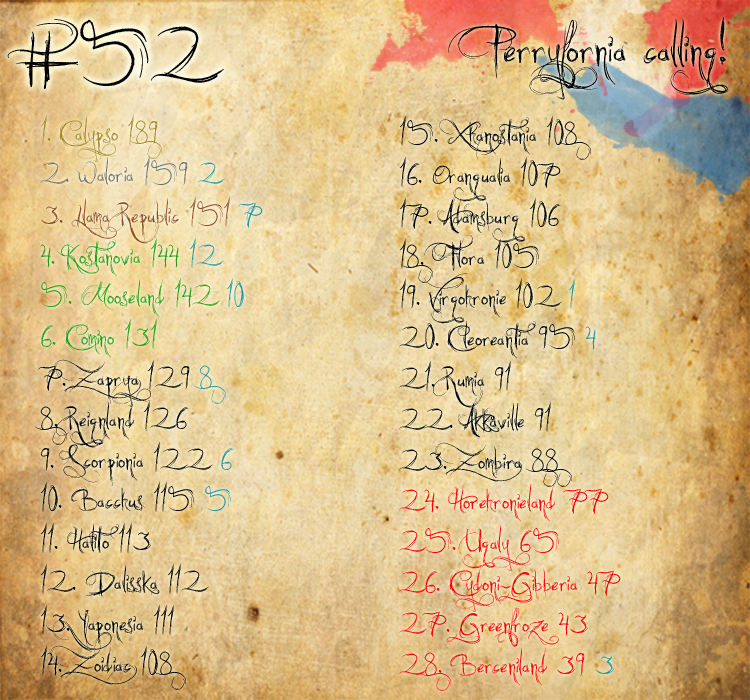 #52
Perryfornia calling!
1. Calypso 189
2. Waloria 159 2
3. Llama Republic 151 7
4. Kostanovia 144 12
5. Mooseland 142 10
6. Comino 131
7. Zaprya 129 8
8. Reignland 126
9. Scorpionia 122 6
10. Bacchus 115 5
11. Hatito 113
12. Dalisska 112
13. Yaponesia 111
14. Zoidiac 108
15. Xhanostania 108
16. Orangualia 107
17. Adamsburg 106
18. Flora 105
19. Virgokronie 102 1
20. Cleoreantia 95 4
21. Rumia 91
22. Akkaville 91
23. Zombira 88
24. Horekronieland 77
25. Ugaly 65
26. Cydoni-Gibberia 47
27. Greenfroze 43
28. Berseniland 39 3